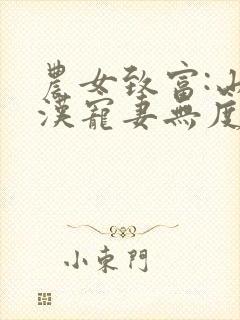 農女致富:山
漢寵妻無度
小東門